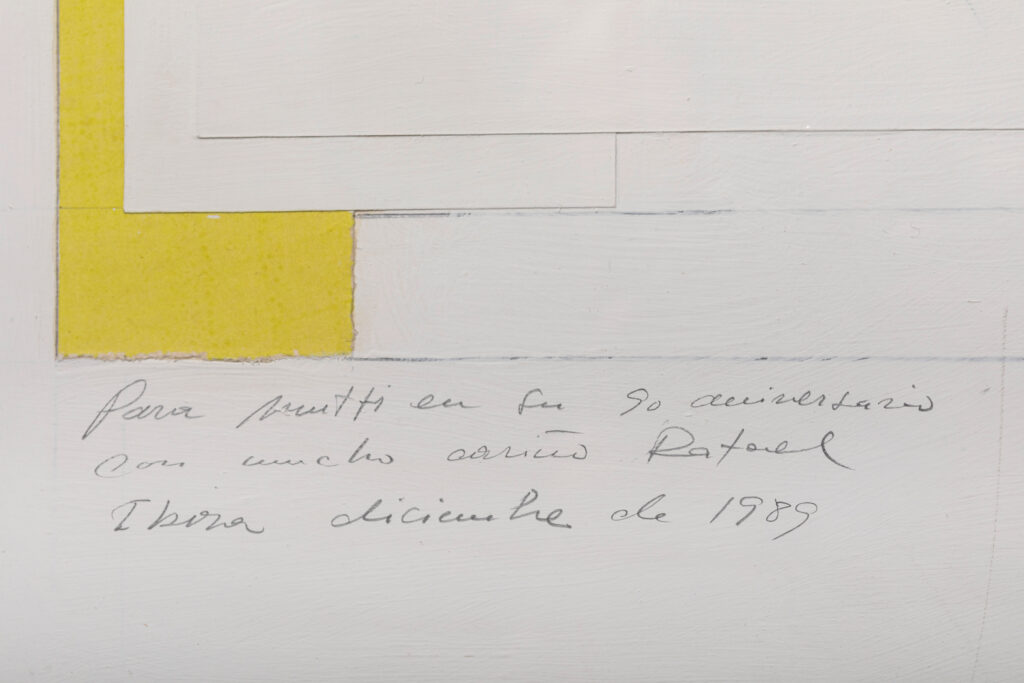 Para mutti en su 90 aniversario
con mucho cariño Rafael
Ibiza diciembre de 1989